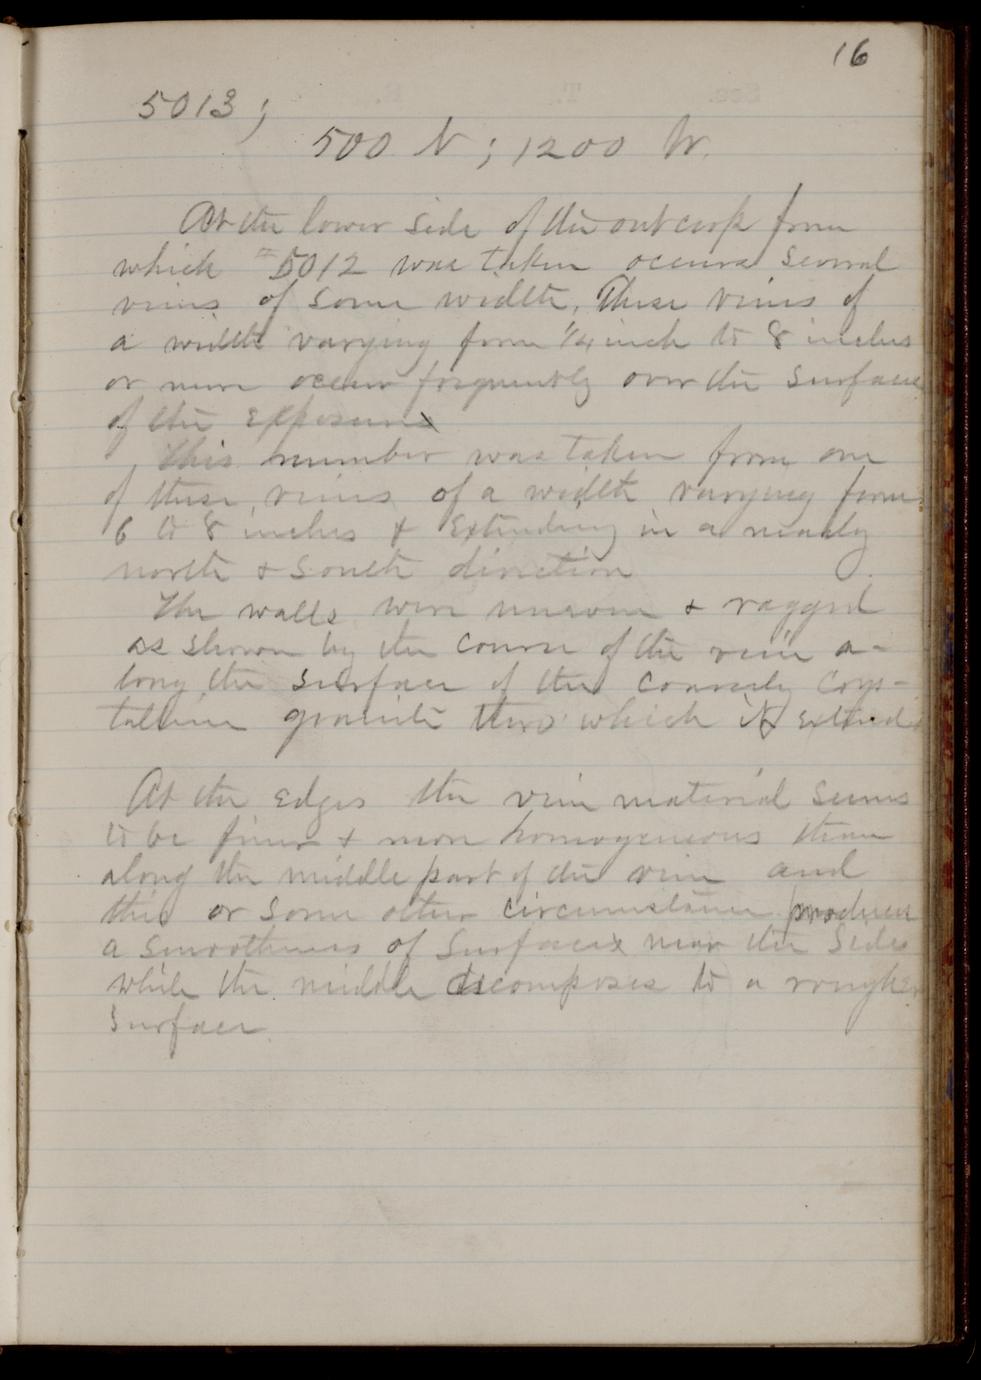 16
5013;
500 N; 1200 W.
At the lower side of the outcrop from
which #5012 was taken occurs several
veins of some width. These veins of
a width varying from 1/4 inch to 8 inches
or more occur frequently over the surface
of the exposure
This number was taken from one
of these veins of a width varying from
6 to 8 inches & extending in a nearly
north & south direction.
The walls were uneven & ragged
as shown by the course of the vein a-
long the surface of the coarsely crys-
talline granite thro which it extends
At the edges the vein material seems
to be finer & more homogeneous than
along the middle part of the vein and
this or some other circumstance produces
a smoothness of surface near the sides
while the middle decomposes to a rougher
surface.